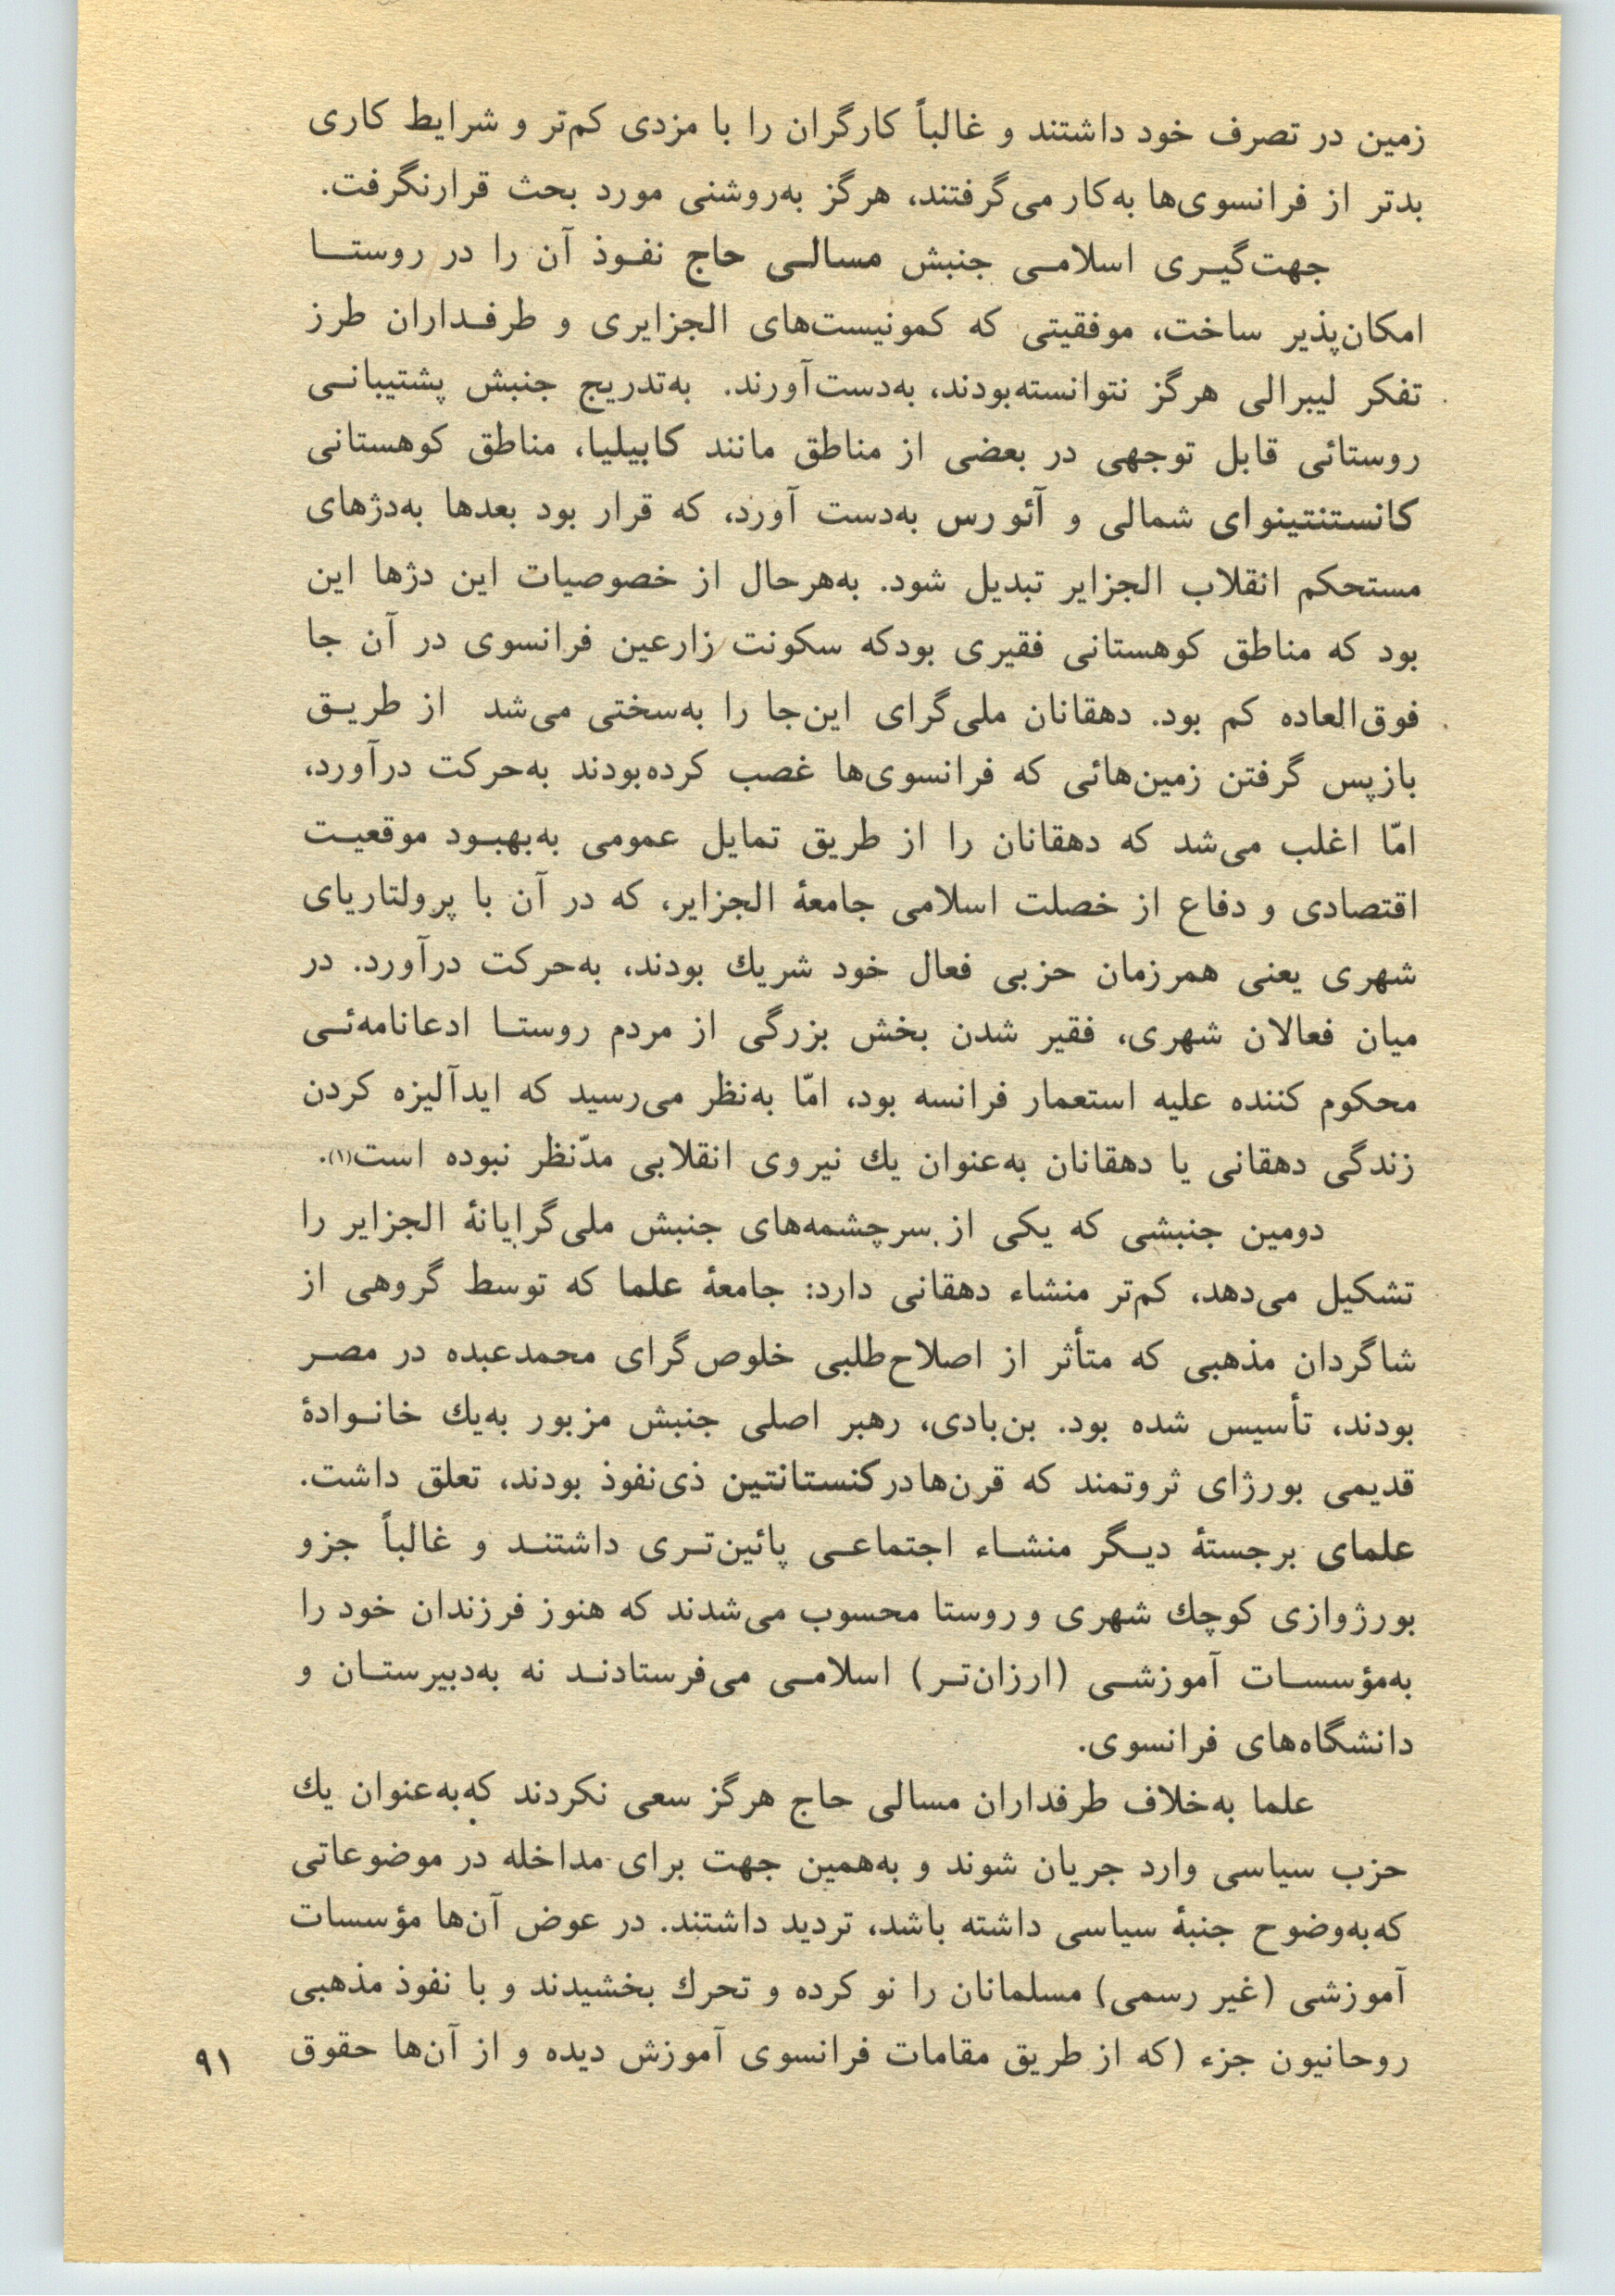 زمین در تصرف خود داشتند و غالباً کارگران را با مزدی کم‌تر و شرایط کاری
بدتر از فرانسوی‌ها به‌کار می‌گرفتند، هرگز به‌روشنی مورد بحث قرارنگرفت.
جهت‌گیـری اسلامـی جنبش مسالـی حاج نفـوذ آن را در روستـا
امکان‌پذیر ساخت، موفقیتی که کمونیست‌های الجزایری و طرفـداران طرز
تفکر لیبرالی هرگز نتوانسته‌بودند، به‌دست‌آورند. به‌تدریج جنبش پشتیبانـی
روستائی قابل توجهی در بعضی از مناطق مانند کابیلیا، مناطق کوهستانی
کانستنتینوای شمالی و آئورس به‌دست آورد، که قرار بود بعدها به‌دژهای
مستحکم انقلاب الجزایر تبدیل شود. به‌هرحال از خصوصیات این دژها این
بود که مناطق کوهستانی فقیری بودکه سکونت زارعین فرانسوی در آن جا
فوق‌العاده کم بود. دهقانان ملی‌گرای این‌جا را به‌سختی می‌شد از طریـق
بازپس گرفتن زمین‌هائی که فرانسوی‌ها غصب کرده‌بودند به‌حرکت درآورد،
امّا اغلب می‌شد که دهقانان را از طریق تمایل عمومی به‌بهبـود موقعیـت
اقتصادی و دفاع از خصلت اسلامی جامعهٔ الجزایر، که در آن با پرولتاریای
شهری یعنی همرزمان حزبی فعال خود شریك بودند، به‌حرکت درآورد. در
میان فعالان شهری، فقیر شدن بخش بزرگی از مردم روستـا ادعانامه‌ئـی
محکوم کننده علیه استعمار فرانسه بود، امّا به‌نظر می‌رسید که ایدآلیزه کردن
زندگی دهقانی یا دهقانان به‌عنوان یك نیروی انقلابی مدّنظر نبوده است(۱).
دومین جنبشی که یکی از سرچشمه‌های جنبش ملی‌گرایانهٔ الجزایر را
تشکیل می‌دهد، کم‌تر منشاء دهقانی دارد: جامعهٔ علما که توسط گروهی از
شاگردان مذهبی که متأثر از اصلاح‌طلبی خلوص‌گرای محمدعبده در مصـر
بودند، تأسیس شده بود. بن‌بادی، رهبر اصلی جنبش مزبور به‌یك خانـوادهٔ
قدیمی بورژای ثروتمند که قرن‌ها درکنستانتین ذی‌نفوذ بودند، تعلق داشت.
علمای برجستهٔ دیـگر منشـاء اجتماعـی پائین‌تـری داشتنـد و غالباً جزو
بورژوازی کوچك شهری و روستا محسوب می‌شدند که هنوز فرزندان خود را
به‌مؤسسـات آموزشـی (ارزان‌تـر) اسلامـی می‌فرستادنـد نه به‌دبیرستـان و
دانشگاه‌های فرانسوی.
علما به‌خلاف طرفداران مسالی حاج هرگز سعی نکردند که‌به‌عنوان یك
حزب سیاسی وارد جریان شوند و به‌همین جهت برای مداخله در موضوعاتی
که‌به‌وضوح جنبهٔ سیاسی داشته باشد، تردید داشتند. در عوض آن‌ها مؤسسات
آموزشی (غیر رسمی) مسلمانان را نو کرده و تحرك بخشیدند و با نفوذ مذهبی
روحانیون جزء (که از طریق مقامات فرانسوی آموزش دیده و از آن‌ها حقوق
۹۱